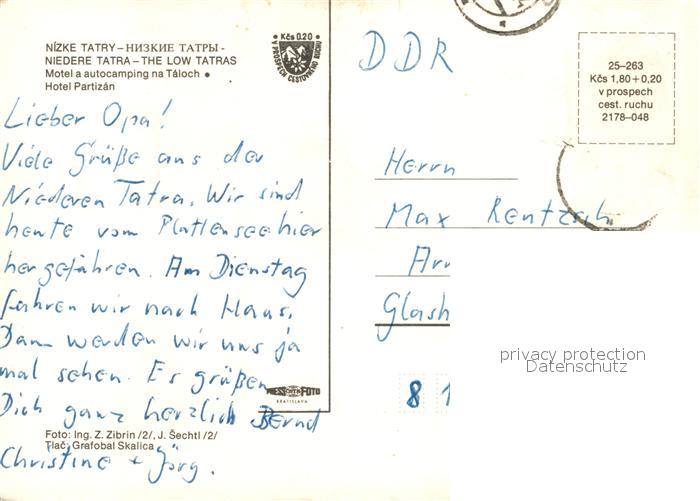 NÍZKE TATRY – НИЗКИЕ ТАТРЫ -
NIEDERE TATRA – THE LOW TATRAS
Motel a autocamping na Táloch •
Hotel Partizán
• Kčs 0.20 •
V PROSPECH CESTOVNÉHO RUCHU
Lieber Opa!
Viele Grüße aus der
Niederen Tatra. Wir sind
heute vom Plattensee hier
hergefahren. Am Dienstag
fahren wir nach Haus.
Dann werden wir uns ja
mal sehen. Es grüßen
Dich ganz herzlich Bernd
Christine + Jörg.
PRESSFOTO
BRATISLAVA
Foto: Ing. Z. Zibrin /2/, J. Šechtl /2/
Tlač: Grafobal Skalica
DDR
25–263
Kčs 1,80 + 0,20
v prospech
cest. ruchu
2178–048
Herrn
Max Rentzsch
Glash
8
privacy protection
Datenschutz